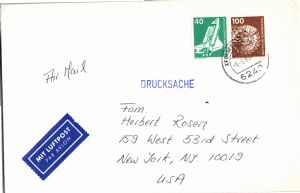 40
100
6242
Air Mail
DRUCKSACHE
Fam.
Herbert Rosen
159 West 53rd Street
New York, NY, 10019
USA
MIT LUFTPOST
PAR AVION